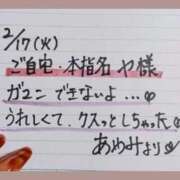 2/17(火)
ご自宅・本指名 や様
ガマン できないよ...
うれしくて、クスっとしちゃった
あめみより